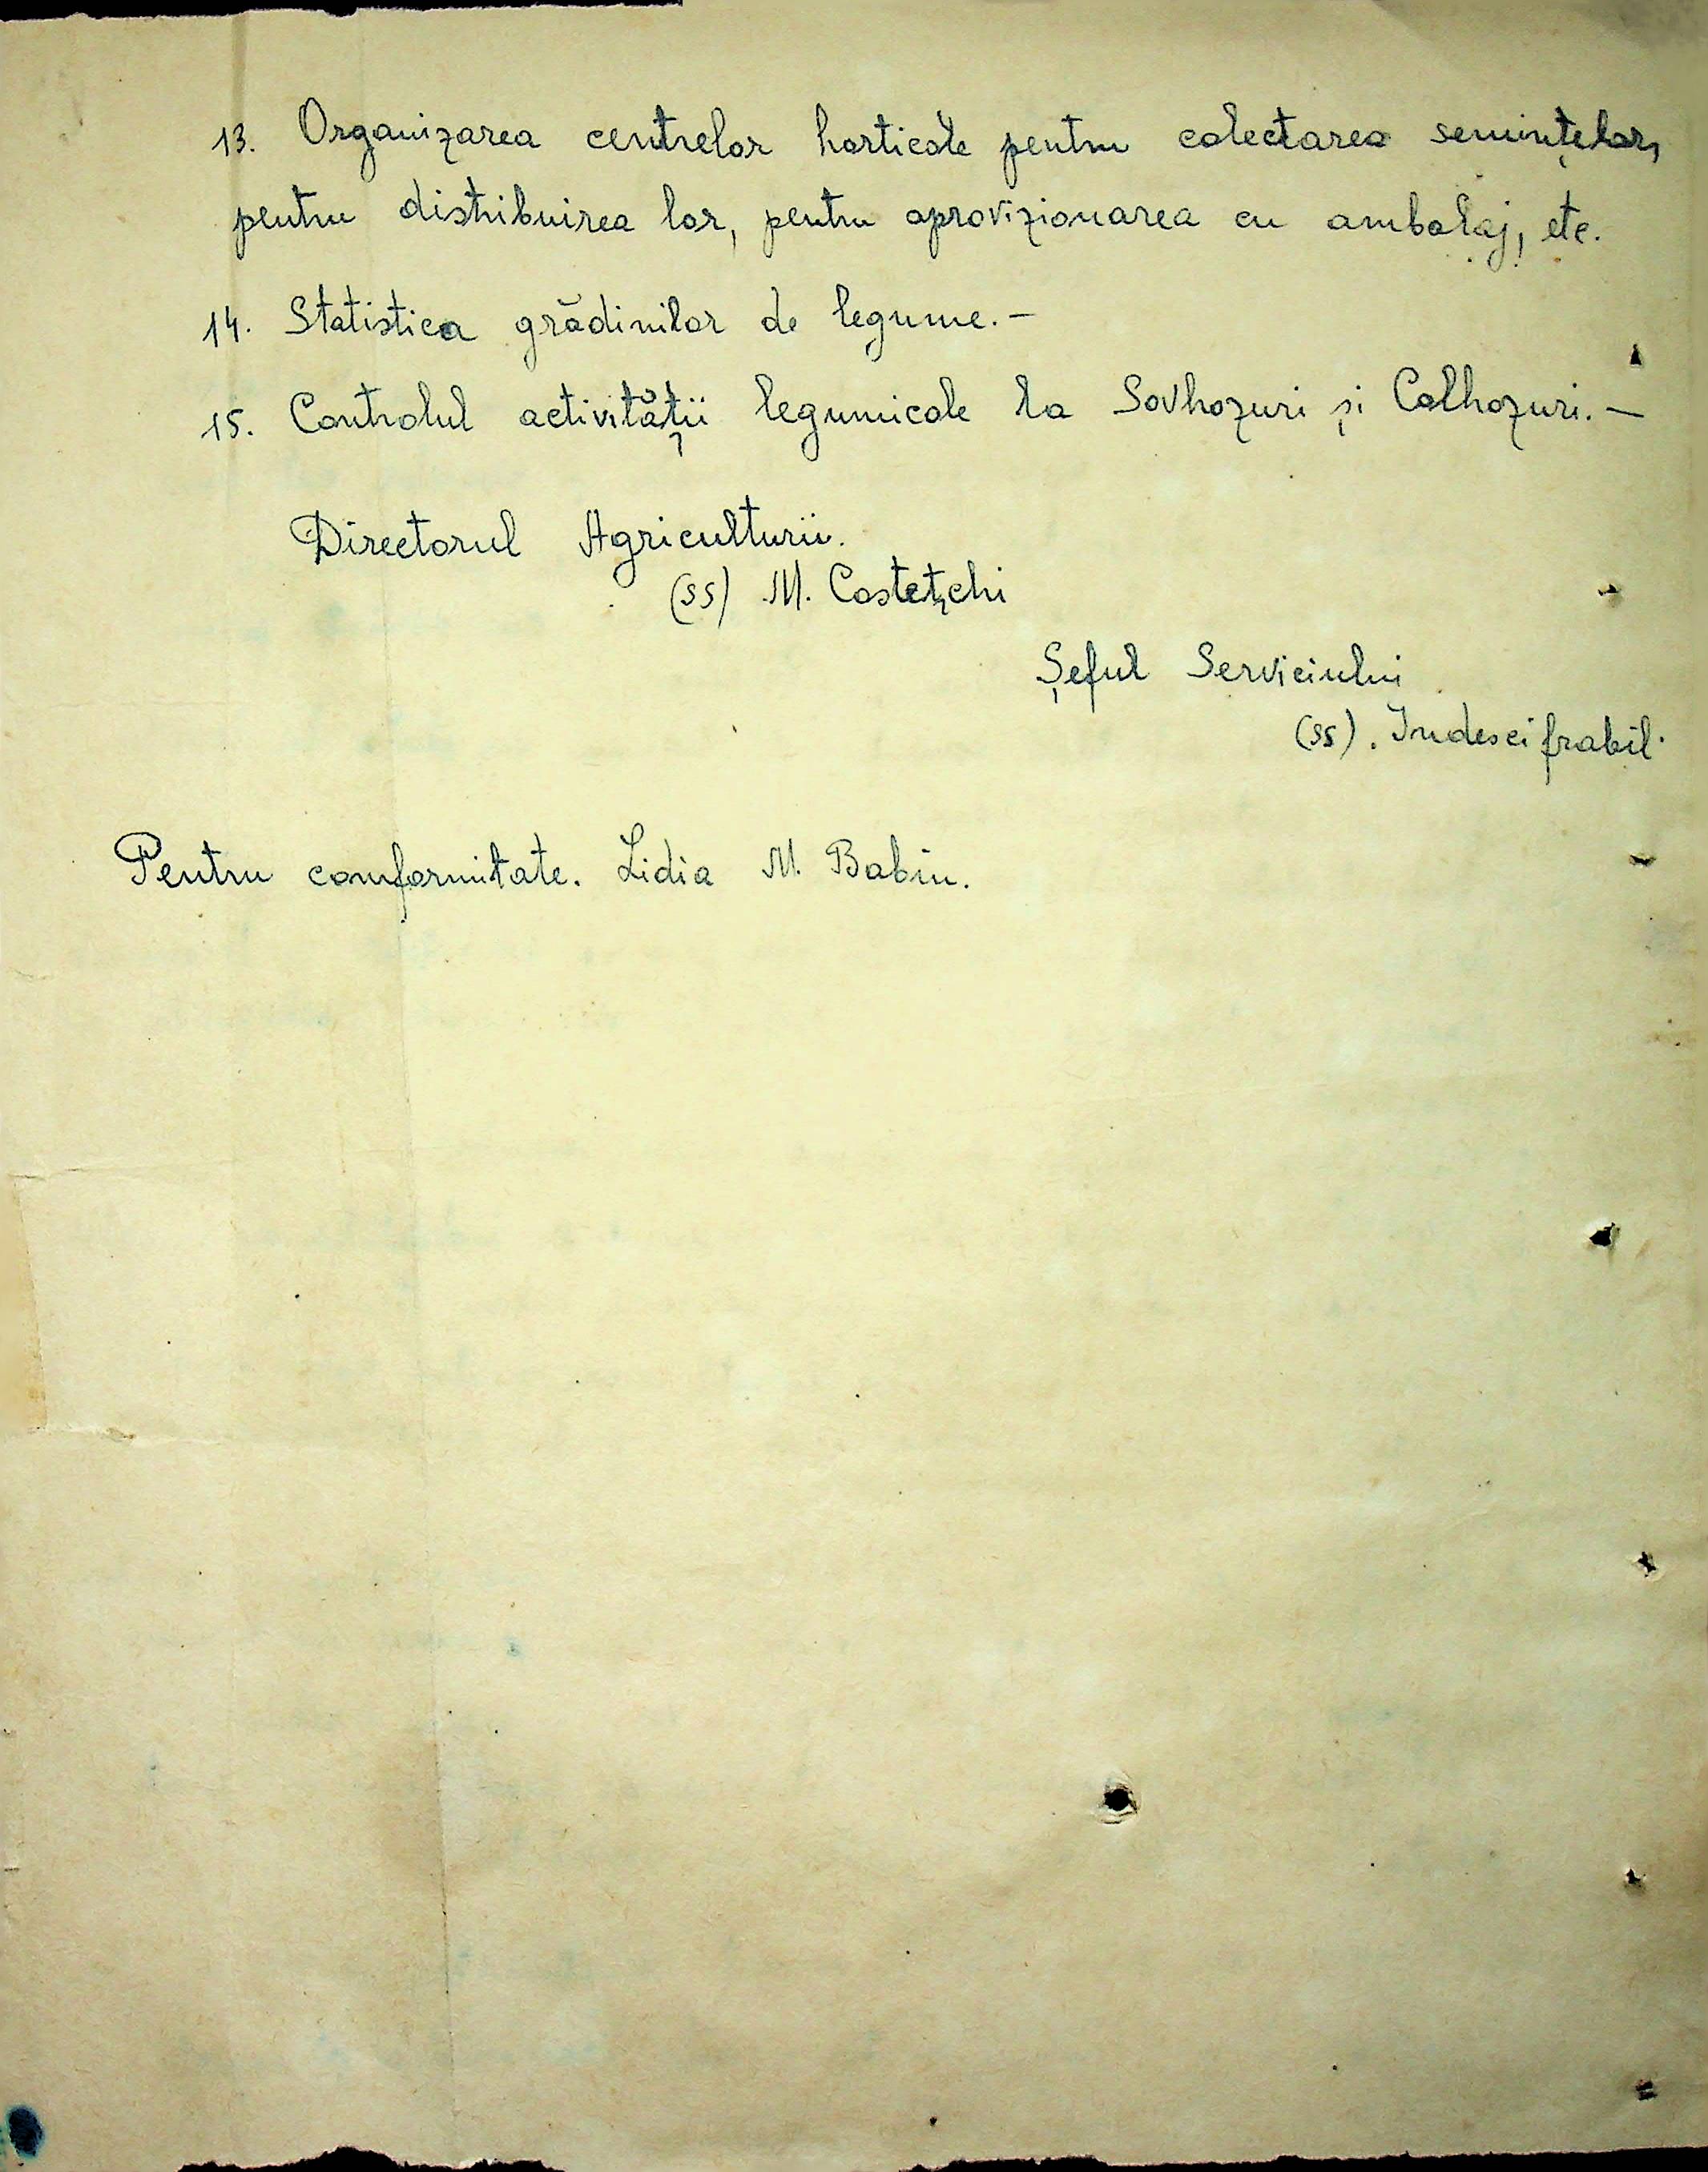 13. Organizarea centrelor horticole pentru colectarea semințelor,
pentru distribuirea lor, pentru aprovizionarea cu ambalaj, etc.
14. Statistica grădinilor de legume.-
15. Controlul activității legumicole la Sovhozuri și Colhozuri.-
Directorul Agriculturii.
(ss) M. Costețchi
Șeful Serviciului
(ss). Indescifrabil.
Pentru comformitate. Lidia M. Babin.